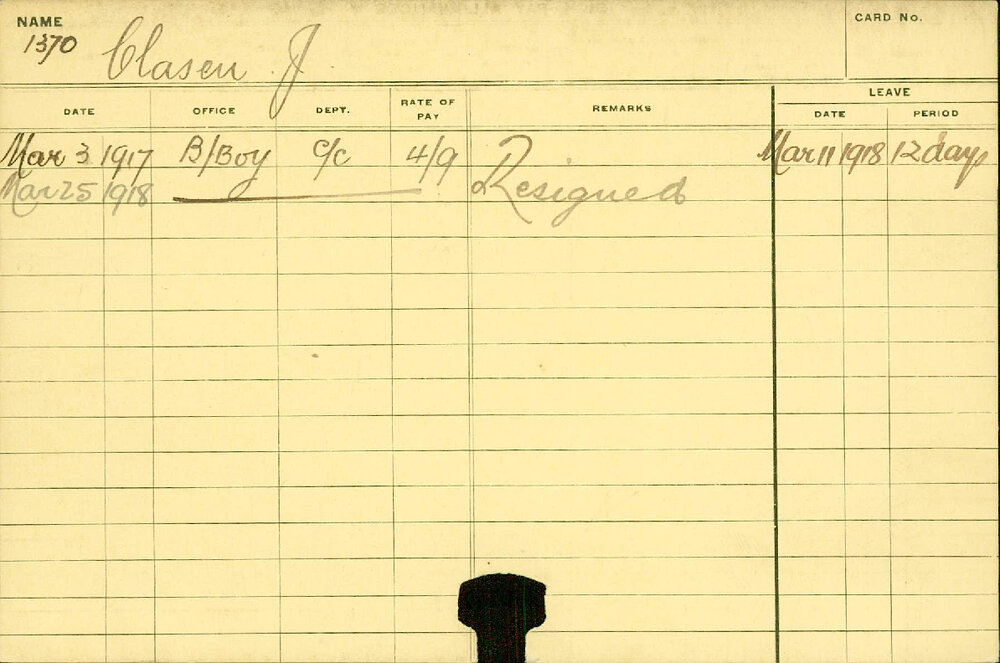 NAME CARD No.
1370 Clasen J
LEAVE
DATE OFFICE DEPT. RATE OF PAY REMARKS DATE PERIOD
Mar 3 1917 B/Boy C/C 4/9 Mar 11 1918 12 days
Mar 25 1918 Resigned